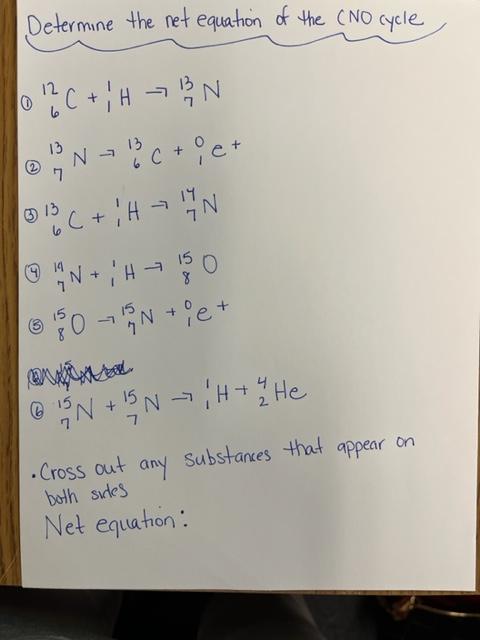 Determine the net equation of the CNO cycle
① ¹²₆C + ¹₁H → ¹³₇N
② ¹³₇N → ¹³₆C + ⁰₁e+
③ ¹³₆C + ¹₁H → ¹⁴₇N
④ ¹⁴₇N + ¹₁H → ¹⁵₈O
⑤ ¹⁵₈O → ¹⁵₇N + ⁰₁e+
⑥ ¹⁵₇N + ¹⁵₇N → ¹₁H + ⁴₂He
• Cross out any substances that appear on
both sides
Net equation: